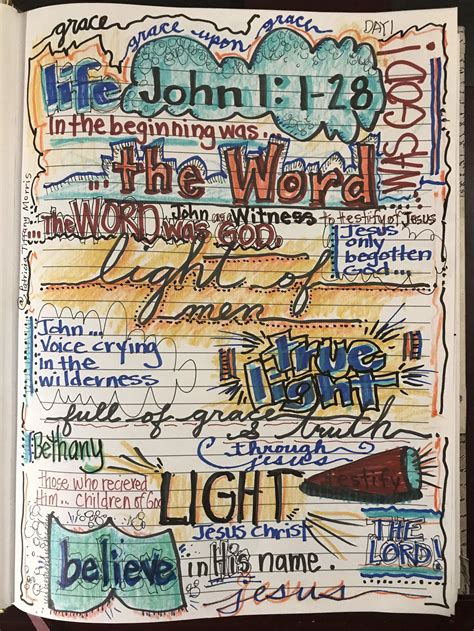 grace grace upon grace
DAY 1
life John 1:1-28
WAS GOD!
In the beginning was..
... the Word
...the WORD was GOD.
John as a Witness to testify of Jesus
Jesus
only
begotten
God...
light of
men
John...
Voice crying
In the
wilderness
true
light
full of grace
& truth
Bethany
through
jesus
Those who recieved
Him... children of God
LIGHT
testify
Jesus Christ
THE
LORD!
believe in His name.
jesus
@ Patricia Tiffany Morris